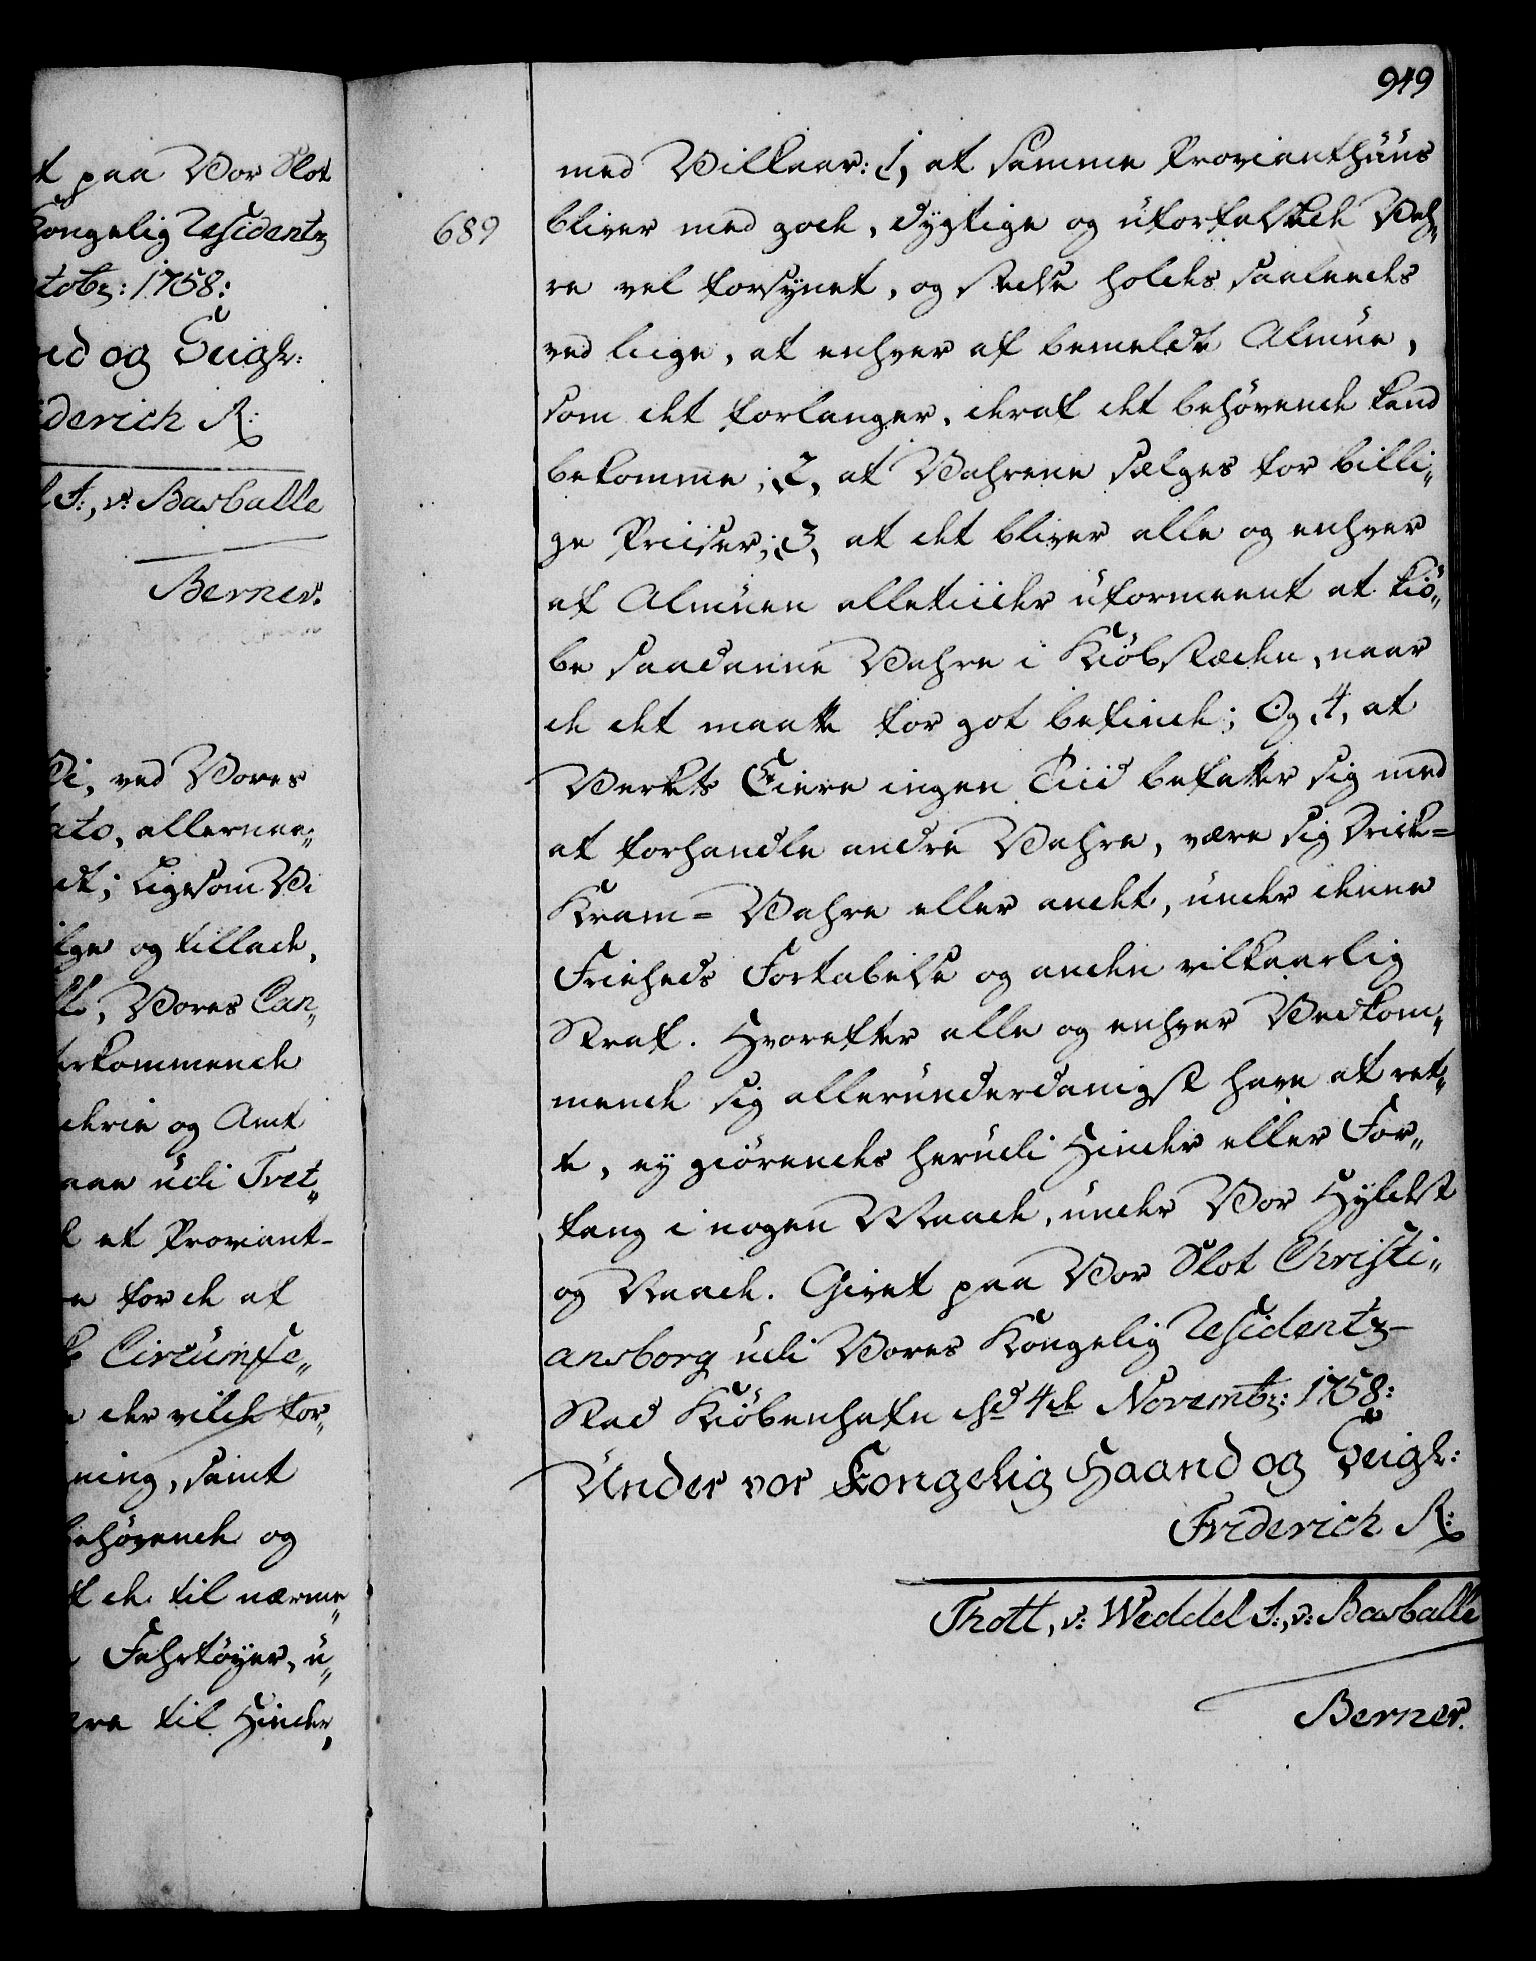 949
689
t paa Vor Slot
Kongelig Residentz
ctobr: 1758:
nd og Seigl:
iderich R:
l S:, v: Barballe
Berner.
Vi, ved Vores
ato, allernaa„
dt; Ligesom Vi
lge og tillade,
Vores Can„
erkommende
derie og Amt
aae udi Tvet„
et Proviant-
for de af
Circumfe„
der vilde for„
ning, samt
behøvende og
de til nærme„
Fahrtøyer, u„
re til Hinder,
med Vilkaar: 1, at samme Provianthuus
bliver med gode, dygtige og uforfalskede Vah„
re vel forsynet, og stedse holdes saaledes
ved lige, at enhver af bemeldte Almue,
som det forlanger, deraf det behøvende kand
bekomme; 2, at Vahrene sælges for billi„
ge Priiser; 3, at det bliver alle og enhver
af Almuen alletiider uformeent at kiö„
be saadanne Vahre i Kiøbstæden, naar
de det maatte for got befinde; Og 4, at
Verkets Eiere ingen Tiid befatter sig med
at forhandle andre Vahre, være sig Drik=
Kram= Vahre eller andet, under denne
Friheds Fortabelse og anden vilkaarlig
Straf. Hvorefter alle og enhver Vedkom„
mende sig allerunderdanigst have at ret„
te, ey giörendes herudi Hinder eller For„
fang i nogen Maade, under Vor Hyldest
og Naade. Givet paa Vor Slot Christi„
ansborg udi Vores Kongelig Residentz-
Stad Kiöbenhafn d 4de Novembr: 1758:
Under vor Kongelig Haand og Seigl:
Friderich R:
Thott, v: Weddel S:, v: Barballe
Berner.